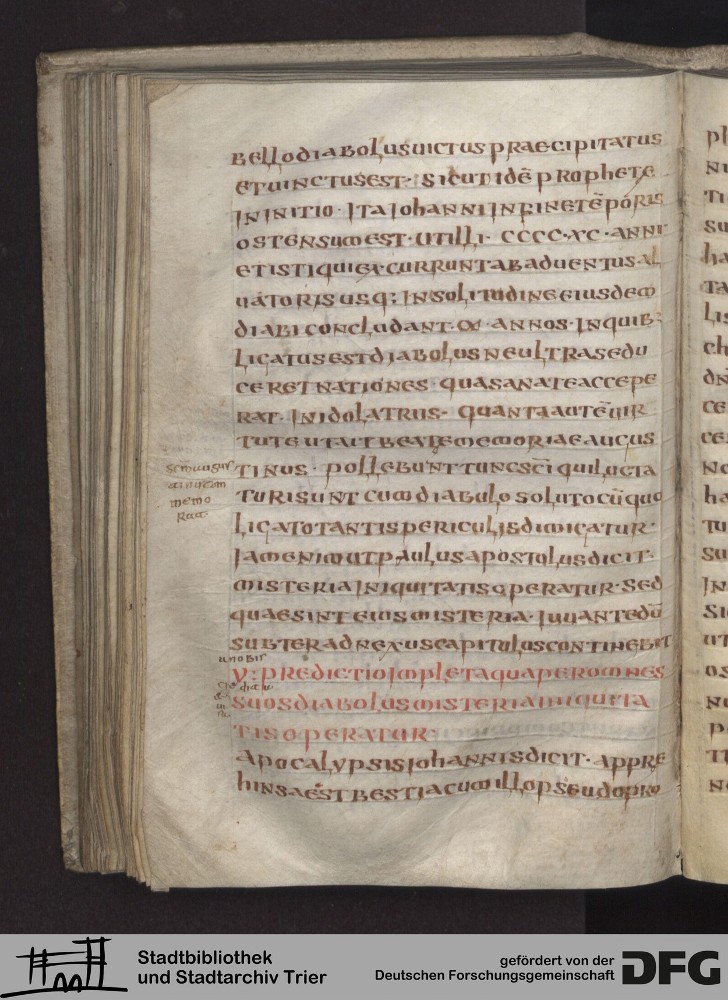 bellodiabolusuictuspraecipitatus
etuinctusest· sicutidē prophete
ininitio· itaiohanniinfinetēporis
ostensumest· utilli· cccc·xc·anni
etistiquiexcurruntabaduentusal
uatorisusq; insolitudineeiusdem
diabiconcludant· ꝏ· annos· inquib;
ligatusestdiabolusneultrasedu
ceretnationes· quasanateaccepe
rat· inidolatriis· quantaautēuir
tuteutaitbeatememoriaeaugus
tinus· pollebunttuncsc̄iquilucta
turisuntcumdiabulosolutocūquo
ligatotantispericulisdimicatur·
iamenimutpaulusapostolusdicit·
misteriainiquitatisoperatur· sed
quaesinteiusmisteria· iuuantedn̄o
subteradnexuscapituluscontinebit
V: predictioimpletaquaperomnes
suosdiabolusmisteriainiquita
tisoperatur·
apocalypsisiohannisdicit· appre
hinsaestbestiacumillopseudopro
memo
Stadtbibliothek
und Stadtarchiv Trier
gefördert von der
Deutschen Forschungsgemeinschaft
DFG